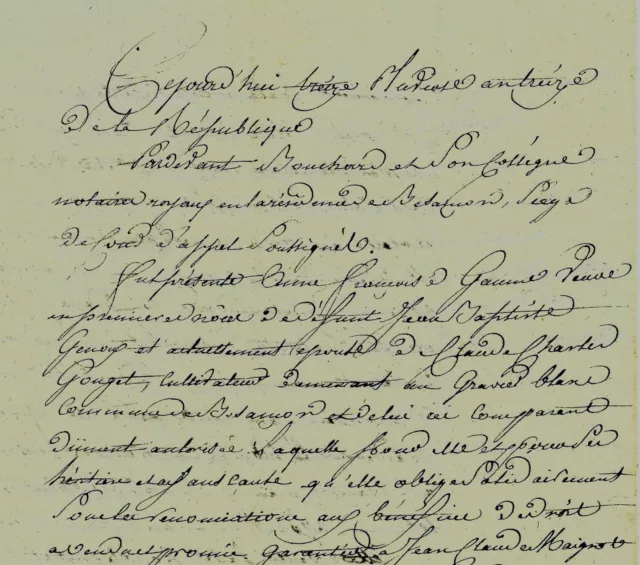 Cejourd'hui treize Pluviose an treize
de la République
Pardevant Bouchard et son Collègue
notaires royaux en la résidence de Besançon, siège
de Cour d'appel soussignés.
Fut présente Anne Françoise Gaume veuve
en premiere nôce de défunt Jean Baptiste
et actuellement epouse de Claude Charles
Gouget, Cultivateur demeurant au Gravier blanc
Commune de Besançon et de lui ici comparant
dûment autorisée. Laquelle pour elle et pour ses
héritiers et ayans cause qu'elle oblige Solidairement
Sous les renonciations aux bénéfices de droit
a vendu et promis garantir à Jean Claude Maignot